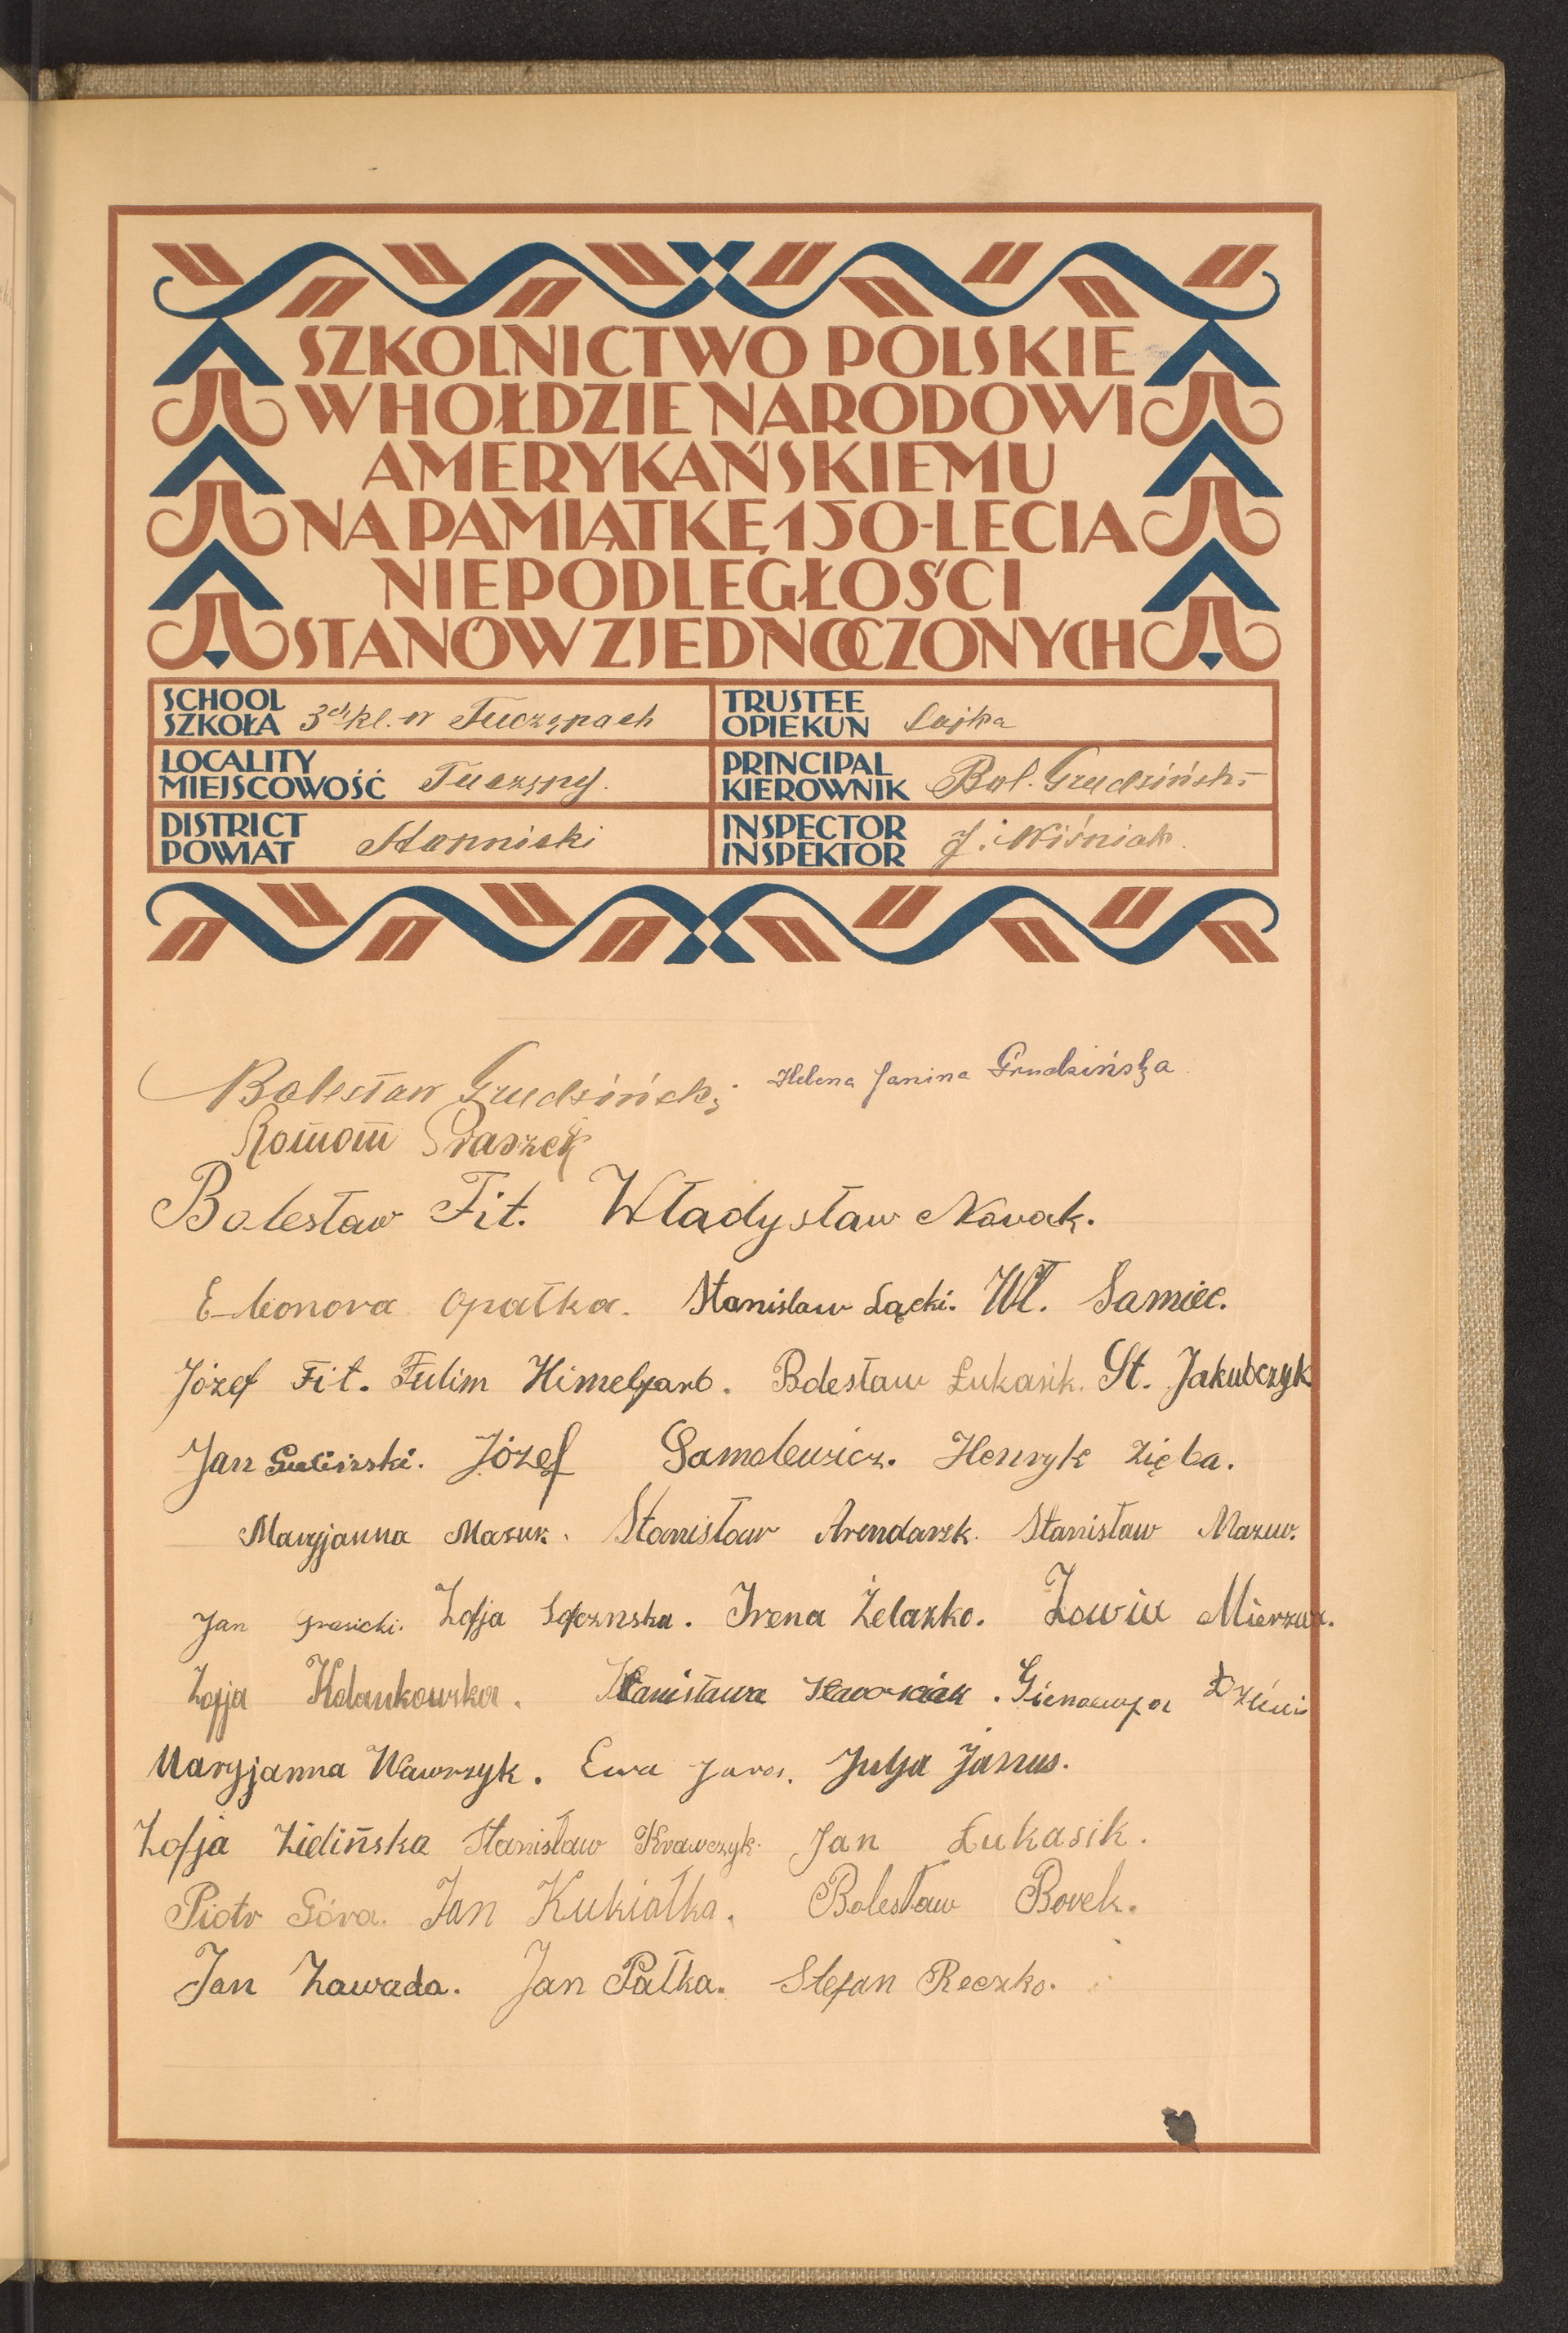 SZKOLNICTWO POLSKIE
W HOŁDZIE NARODOWI
AMERYKAŃSKIEMU
NA PAMIĄTKĘ 150-LECIA
NIEPODLEGŁOŚCI
STANÓW ZJEDNOCZONYCH
SCHOOL
SZKOŁA 3ch kl. w Tuczępach
TRUSTEE
OPIEKUN Łajka
LOCALITY
MIEJSCOWOŚĆ Tuczępy.
PRINCIPAL
KIEROWNIK Bol. Grudziński
DISTRICT
POWIAT Stopnicki
INSPECTOR
INSPEKTOR J. Wiśniak
Bolesław Grudziński Helena Janina Grudzińska
Roman Ptaszek
Bolesław Fit. Władysław Nowak.
Eleonora Opałka. Stanislaw Łącki. Wł. Samiec.
Józef Fit. Fulim Himelfarb. Bolesław Łukasik. St. Jakubczyk
Jan Guliński. Józef Samolewicz. Henryk Zięba.
Maryjanna Mazur. Stanisław Arendarsk. Stanisław Mazur.
Jan Zofja Irena Żelazko. Mierzwa.
Zofja Kolankowska. Stanisława
Maryjanna Wawrzyk. Ewa Jaros. Julja Janus.
Zofja Zielińska Stanisław Krawczyk. Jan Łukasik.
Piotr Góra. Jan Kukiałka. Bolesław Borek.
Jan Zawada. Jan Pałka. Stefan Reczko.